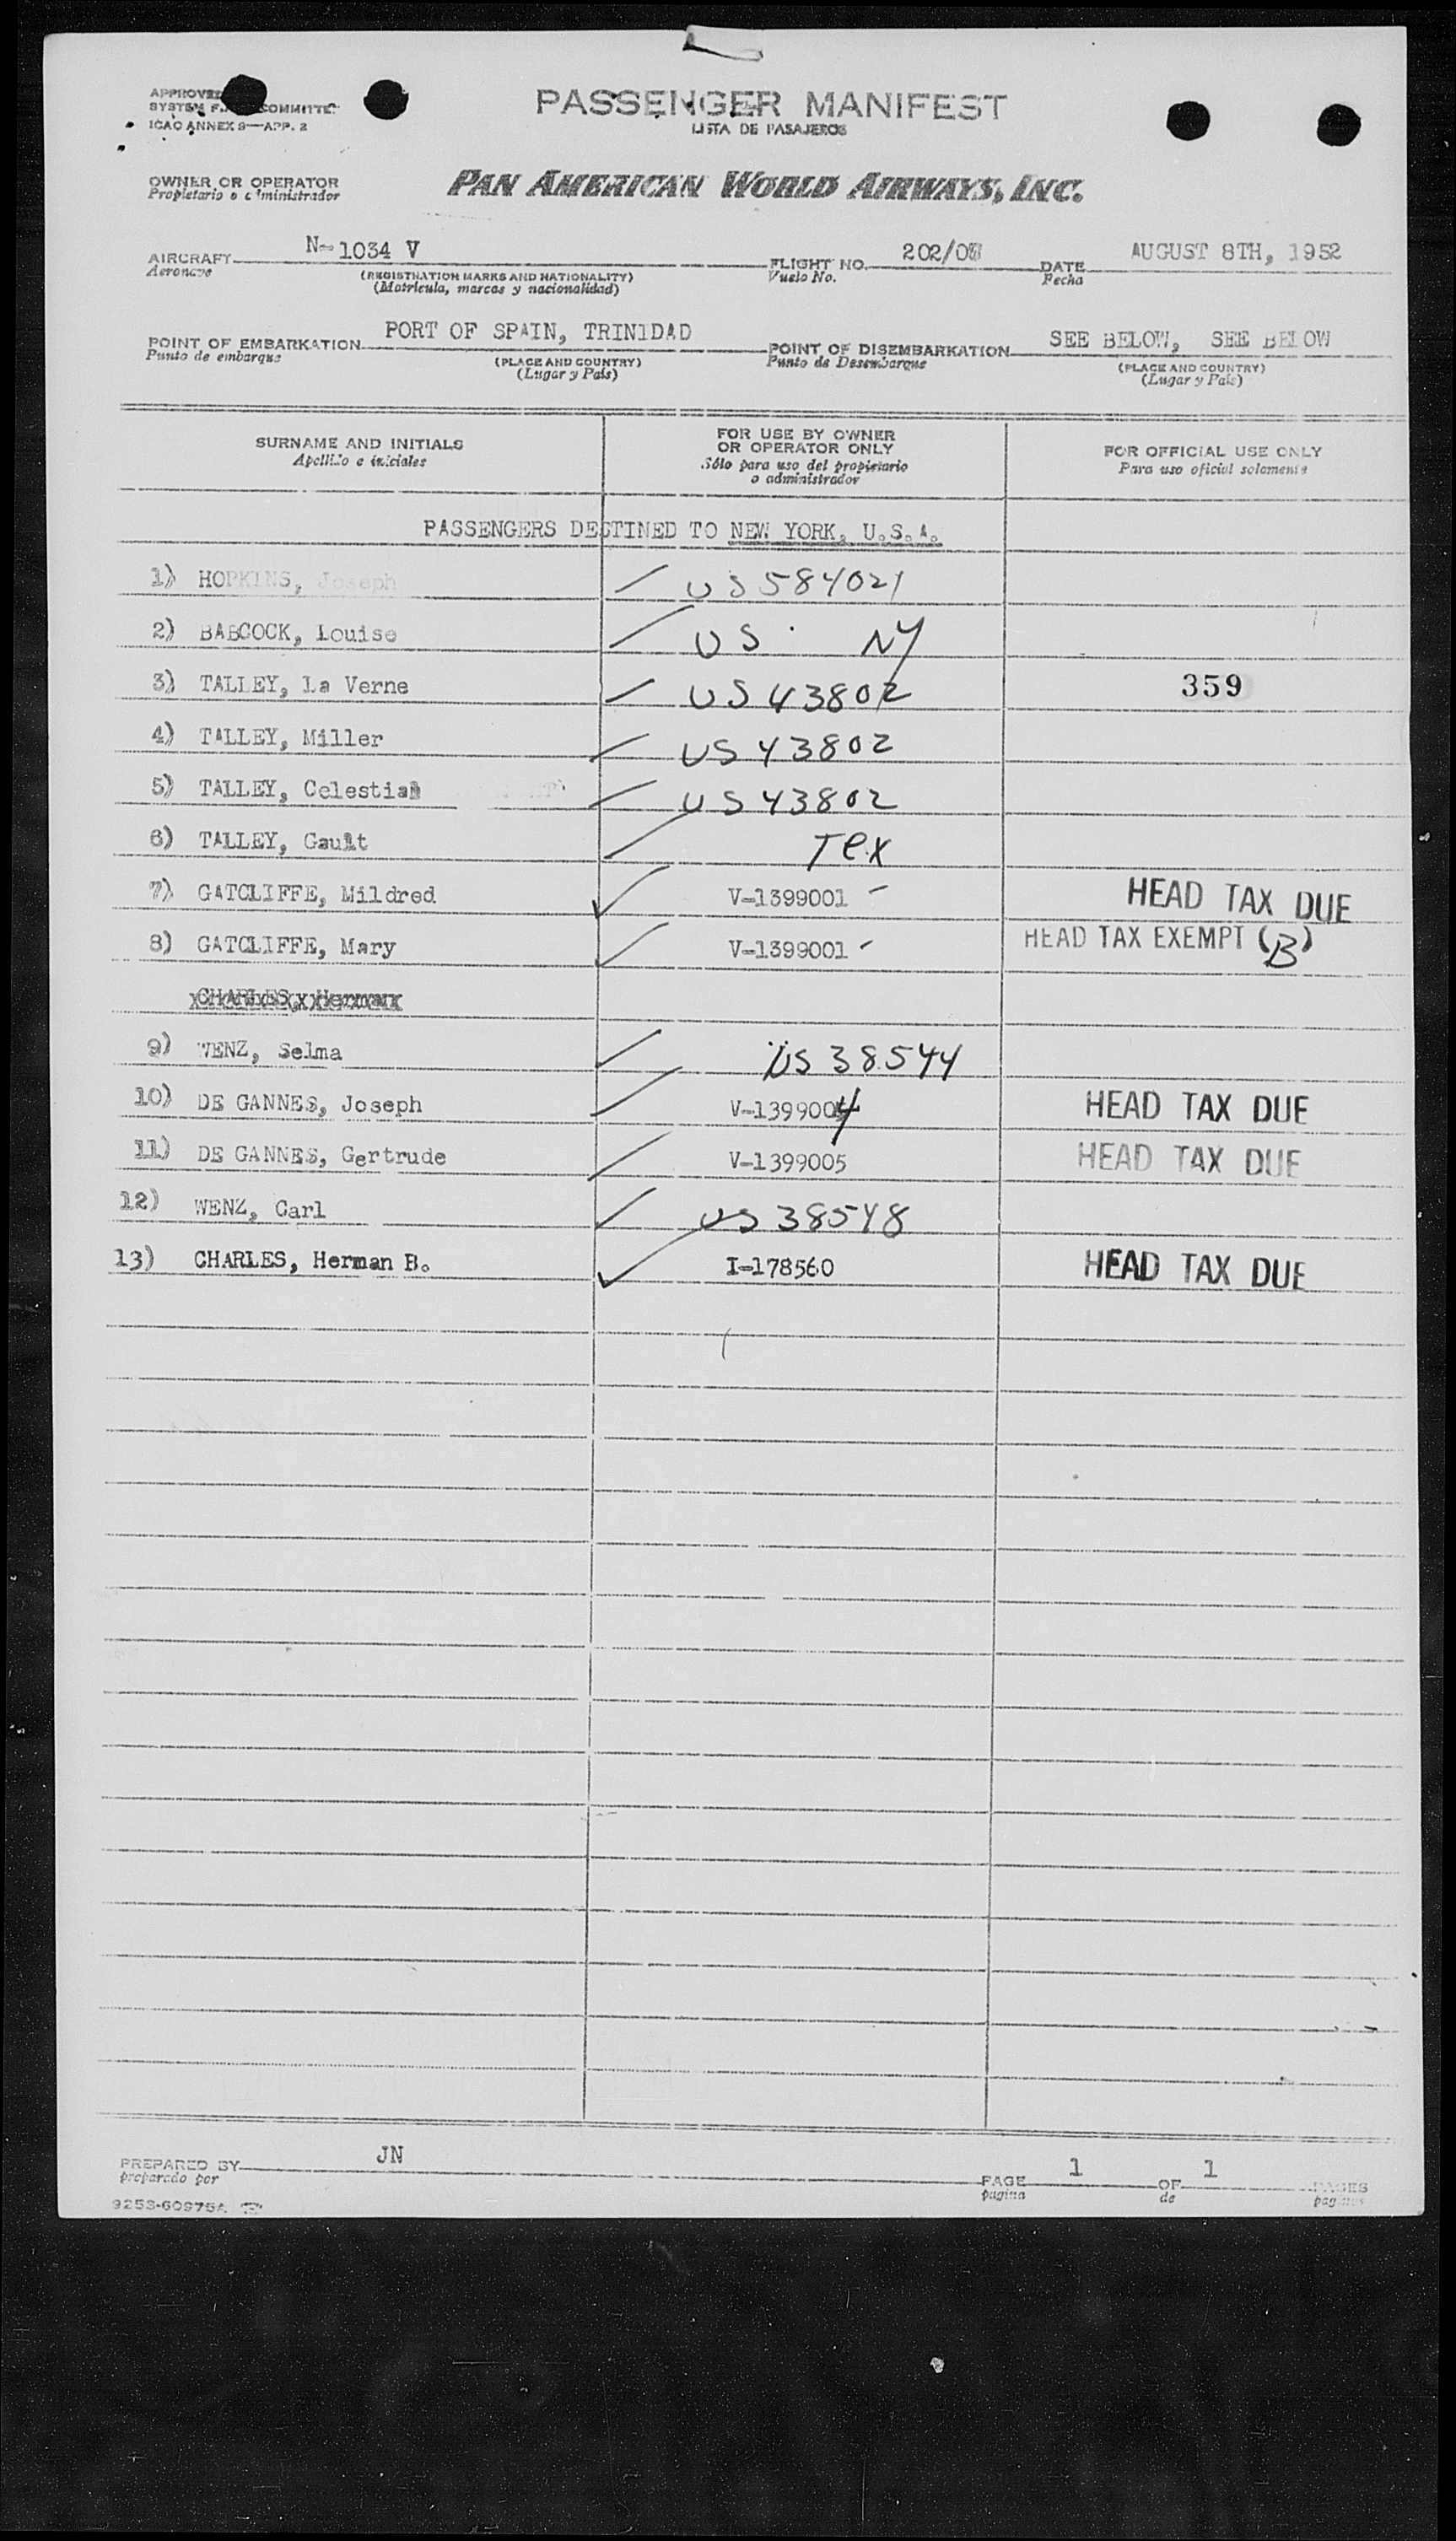 APPROVED
SYSTEM COMMITTEE
ICAO ANNEX 9—APP. 2
PASSENGER MANIFEST
LISTA DE PASAJEROS
OWNER OR OPERATOR
Propietario o administrador
PAN AMERICAN WORLD AIRWAYS, INC.
AIRCRAFT N-1034 V FLIGHT NO. 202/07 DATE AUGUST 8TH, 1952
Aeronave (REGISTRATION MARKS AND NATIONALITY) Vuelo No. Fecha
(Matrícula, marcas y nacionalidad)
POINT OF EMBARKATION PORT OF SPAIN, TRINIDAD POINT OF DISEMBARKATION SEE BELOW, SEE BELOW
Punto de embarque (PLACE AND COUNTRY) Punto de Desembarque (PLACE AND COUNTRY)
(Lugar y País) (Lugar y País)
SURNAME AND INITIALS FOR USE BY OWNER OR OPERATOR ONLY FOR OFFICIAL USE ONLY
Apellido e iniciales Sólo para uso del propietario o administrador Para uso oficial solamente
PASSENGERS DESTINED TO NEW YORK, U.S.A.
1) HOPKINS, Joseph US 584021
2) BABCOCK, Louise US NY
3) TALLEY, La Verne US 43802 359
4) TALLEY, Miller US 43802
5) TALLEY, Celestian US 43802
6) TALLEY, Gault Tex
7) GATCLIFFE, Mildred V-1399001 HEAD TAX DUE
8) GATCLIFFE, Mary V-1399001 HEAD TAX EXEMPT (B)
CHARLES, Herman
9) WENZ, Selma US 38544
10) DE GANNES, Joseph V-1399004 HEAD TAX DUE
11) DE GANNES, Gertrude V-1399005 HEAD TAX DUE
12) WENZ, Carl US 38548
13) CHARLES, Herman B. I-178560 HEAD TAX DUE
PREPARED BY JN PAGE 1 OF 1 PAGES
preparado por pagina de paginas
9253-60975A